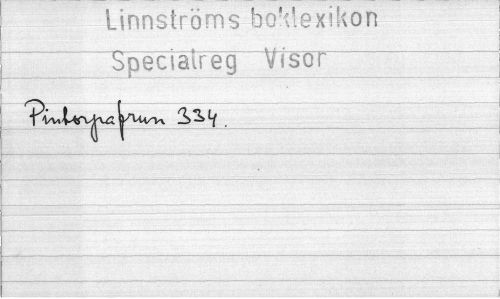 Linnströms boklexikon
Specialreg Visor
Pintorpafrun 334.